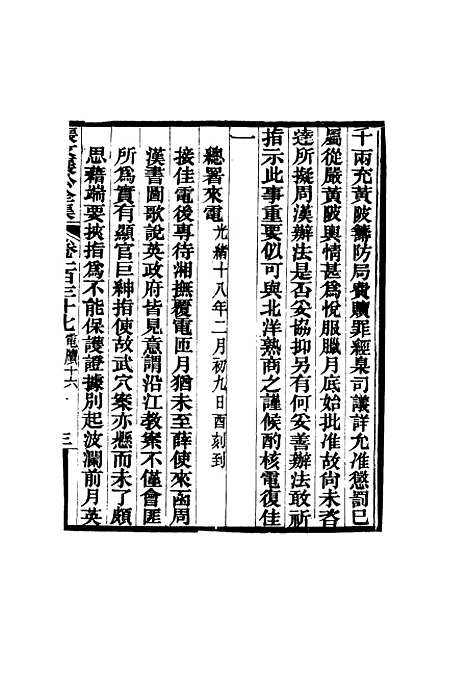 千兩充黃陂籌防局費贖罪經臬司議詳允准懲罰已
屬從嚴黃陂輿情甚爲悅服臘月底始批准故尚未咨
達所擬周漢辦法是否妥協抑另有何妥善辦法敢祈
指示此事重要似可與北洋熟商之謹候酌核電復佳
一
總署來電光緒十八年二月初九日酉刻到
接佳電後專待湘撫覆電匝月猶未至薛使來函周
漢書圖歌說英政府皆見意謂沿江教案不僅會匪
所爲實有顯官巨紳指使故武穴案亦懸而未了頗
思藉端要挾指爲不能保護證據別起波瀾前月英
卷一百三十七 電牘十六 三